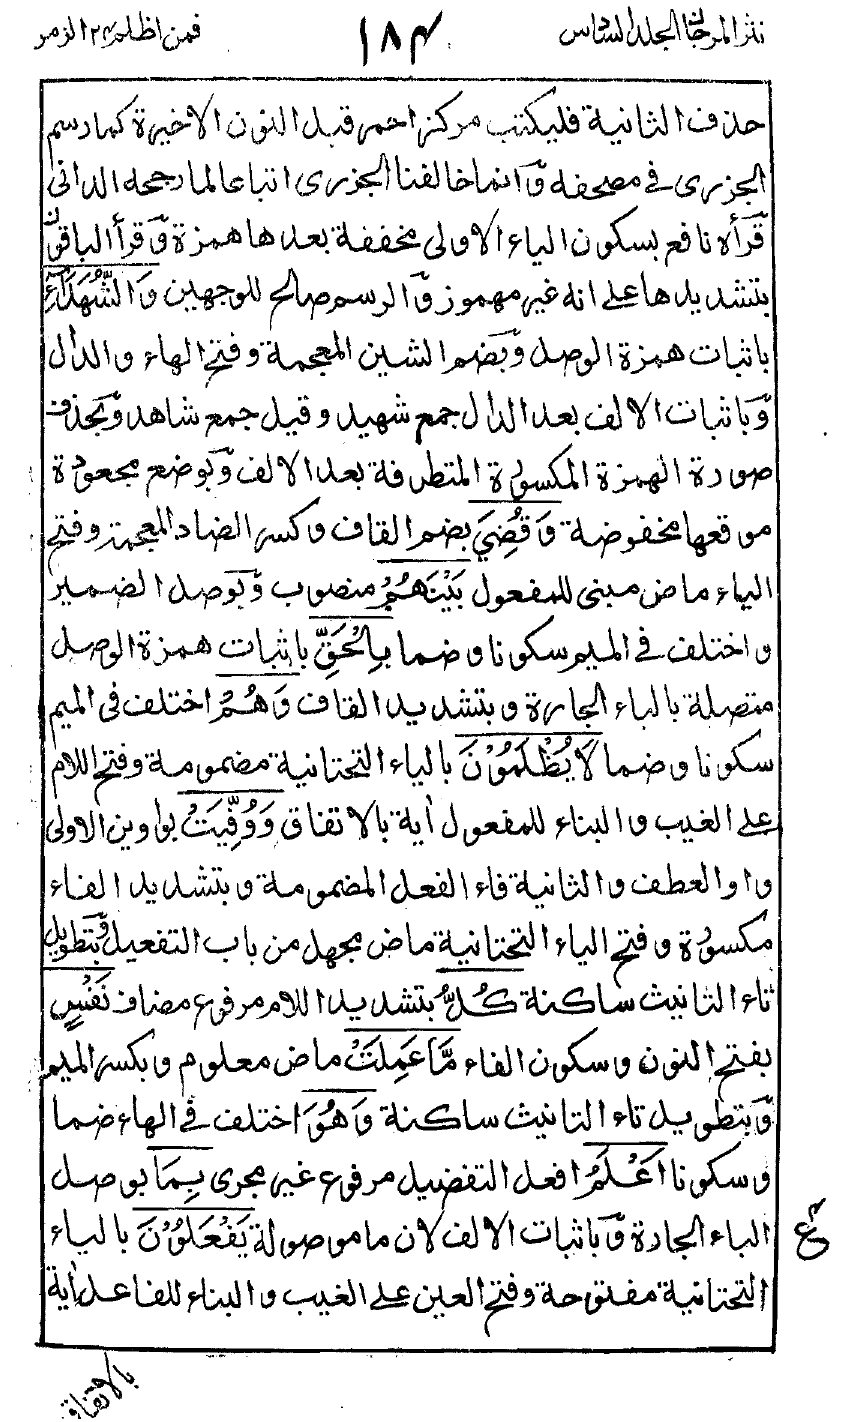 نثر المرجان المجلد السادس
١٨٤
فمن اظلم ٢٤ الزمر
حذف الثانية فليكتب مركز احمر قبل النون الاخيرة كما رسم
الجزرى في مصحفه وٓانما خالفنا الجزرى اتباعا لما رجحه الدانى
قرأه نافع بسكون الياء الاولى مخففة بعدها همزة وٓقرأ الباقون
بتشديدها على انه غير مهموز وٓالرسم صالح للوجهين وَالشُّهَدَآءِ
باثبات همزة الوصل وٓبضم الشين المعجمة وفتح الهاء والدال
وٓباثبات الالف بعد الدال جمع شهيد وقيل جمع شاهد وٓبحذف
صورة الهمزة المكسورة المتطرفة بعد الالف وٓبوضع مجعودة
موقعها مخفوضة وَقُضِيَ بضم القاف وكسر الضاد المعجمة وفتح
الياء ماض مبنى للمفعول بَيْنَهُمْ منصوب وٓبوصل الضمير
واختلف في الميم سكونا وضما بِالْحَقِّ باثبات همزة الوصل
متصلة بالباء الجارة وبتشديد القاف وَهُمْ اختلف فى الميم
سكونا وضما لَا يُظْلَمُوْنَ بالياء التحتانية مضمومة وفتح اللام
على الغيب والبناء للمفعول اٰية بالاتفاق وَوُفِّيَتْ بواوين الاولى
واو العطف والثانية فاء الفعل المضمومة وبتشديد الفاء
مكسورة وفتح الياء التحتانية ماض مجهل من باب التفعيل وٓبتطويل
تاء التانيث ساكنة كُلُّ بتشديد اللام مرفوع مضاف نَفْسٍ
بفتح النون وسكون الفاء مَّا عَمِلَتْ ماض معلوم وبكسر الميم
وٓبتطويل تاء التانيث ساكنة وَهُوَ اختلف في الهاء ضما
وسكونا اَعْلَمُ افعل التفضيل مرفوع غير مجرى بِمَا بوصل
الباء الجارة وٓباثبات الالف لان ما موصولة يَفْعَلُوْنَ بالياء
التحتانية مفتوحة وفتح العين على الغيب والبناء للفاعل اٰية
ع
بالاتفاق